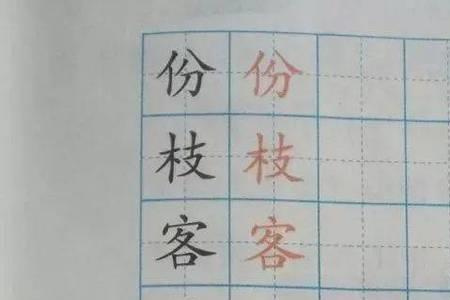 份 份
枝 枝
客 客